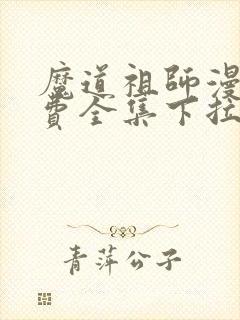 魔道祖師漫
費全集下拉
青萍公子